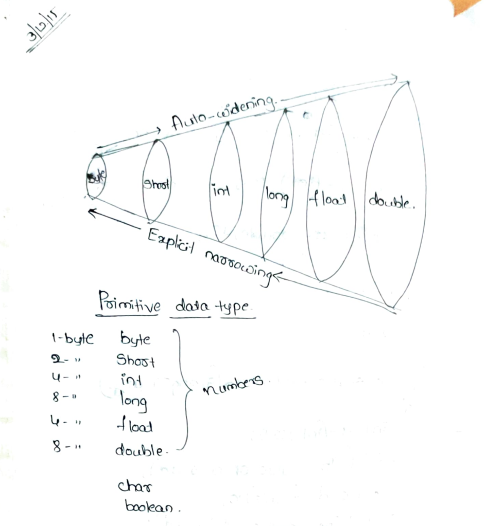 3/12/15
Auto-widening.
byte
short
int
long
float
double.
Explicit narrowing
Primitive data type
1-byte byte
2- " short
4- " int
8- " long
4- " float
8- " double.
numbers
char
boolean.